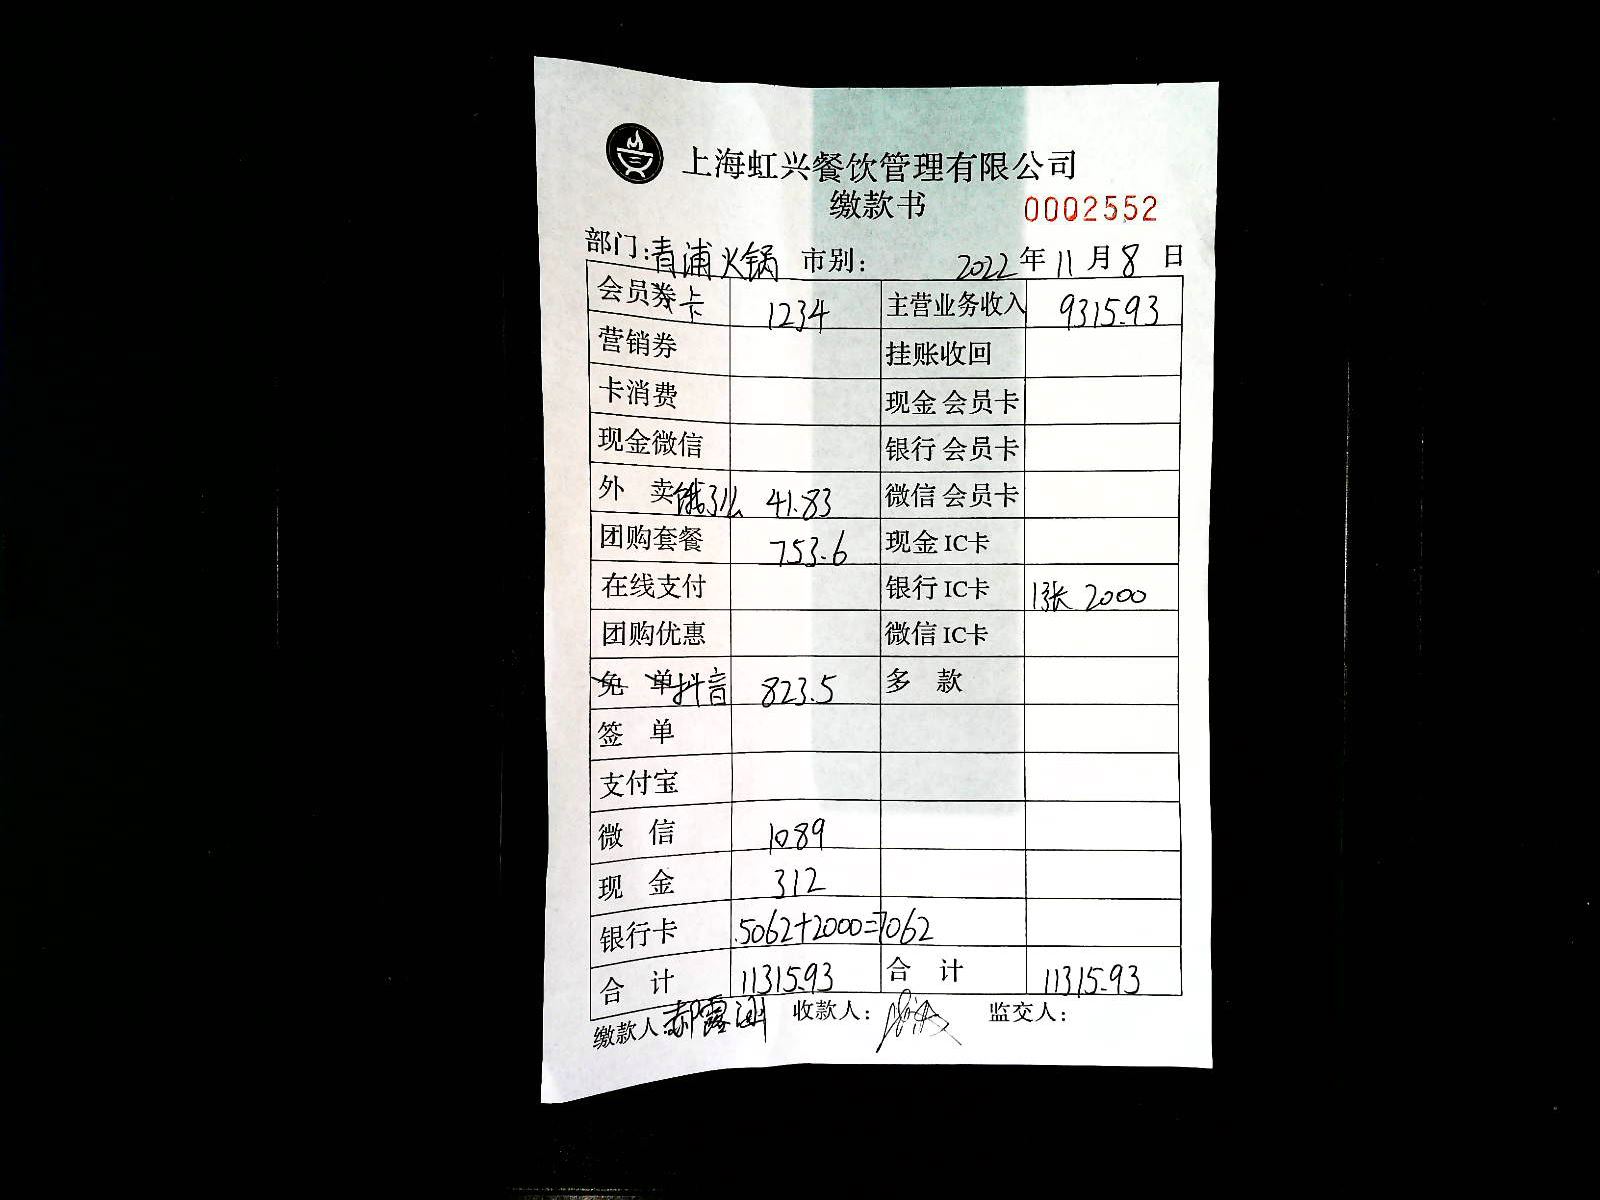 上海虹兴餐饮管理有限公司
缴款书 0002552
部门:青浦火锅 市别: 2022年11月8日
会员券卡 1234 主营业务收入 9315.93
营销券 挂账收回
卡消费 现金 会员卡
现金微信 银行 会员卡
外 卖饿了么 41.83 微信 会员卡
团购套餐 753.6 现金 IC卡
在线支付 银行 IC卡 1张 2000
团购优惠 微信 IC卡
免 单抖音 823.5 多 款
签 单
支付宝
微 信 1089
现 金 312
银行卡 5062+2000=7062
合 计 11315.93 合 计 11315.93
缴款人:郝露 收款人: 监交人: